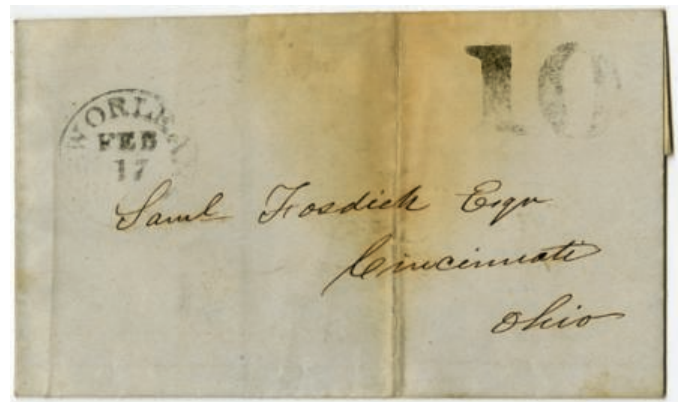 10
WORLEA
FEB
17
Saml Fosdick Esqr
Cincinnati
Ohio